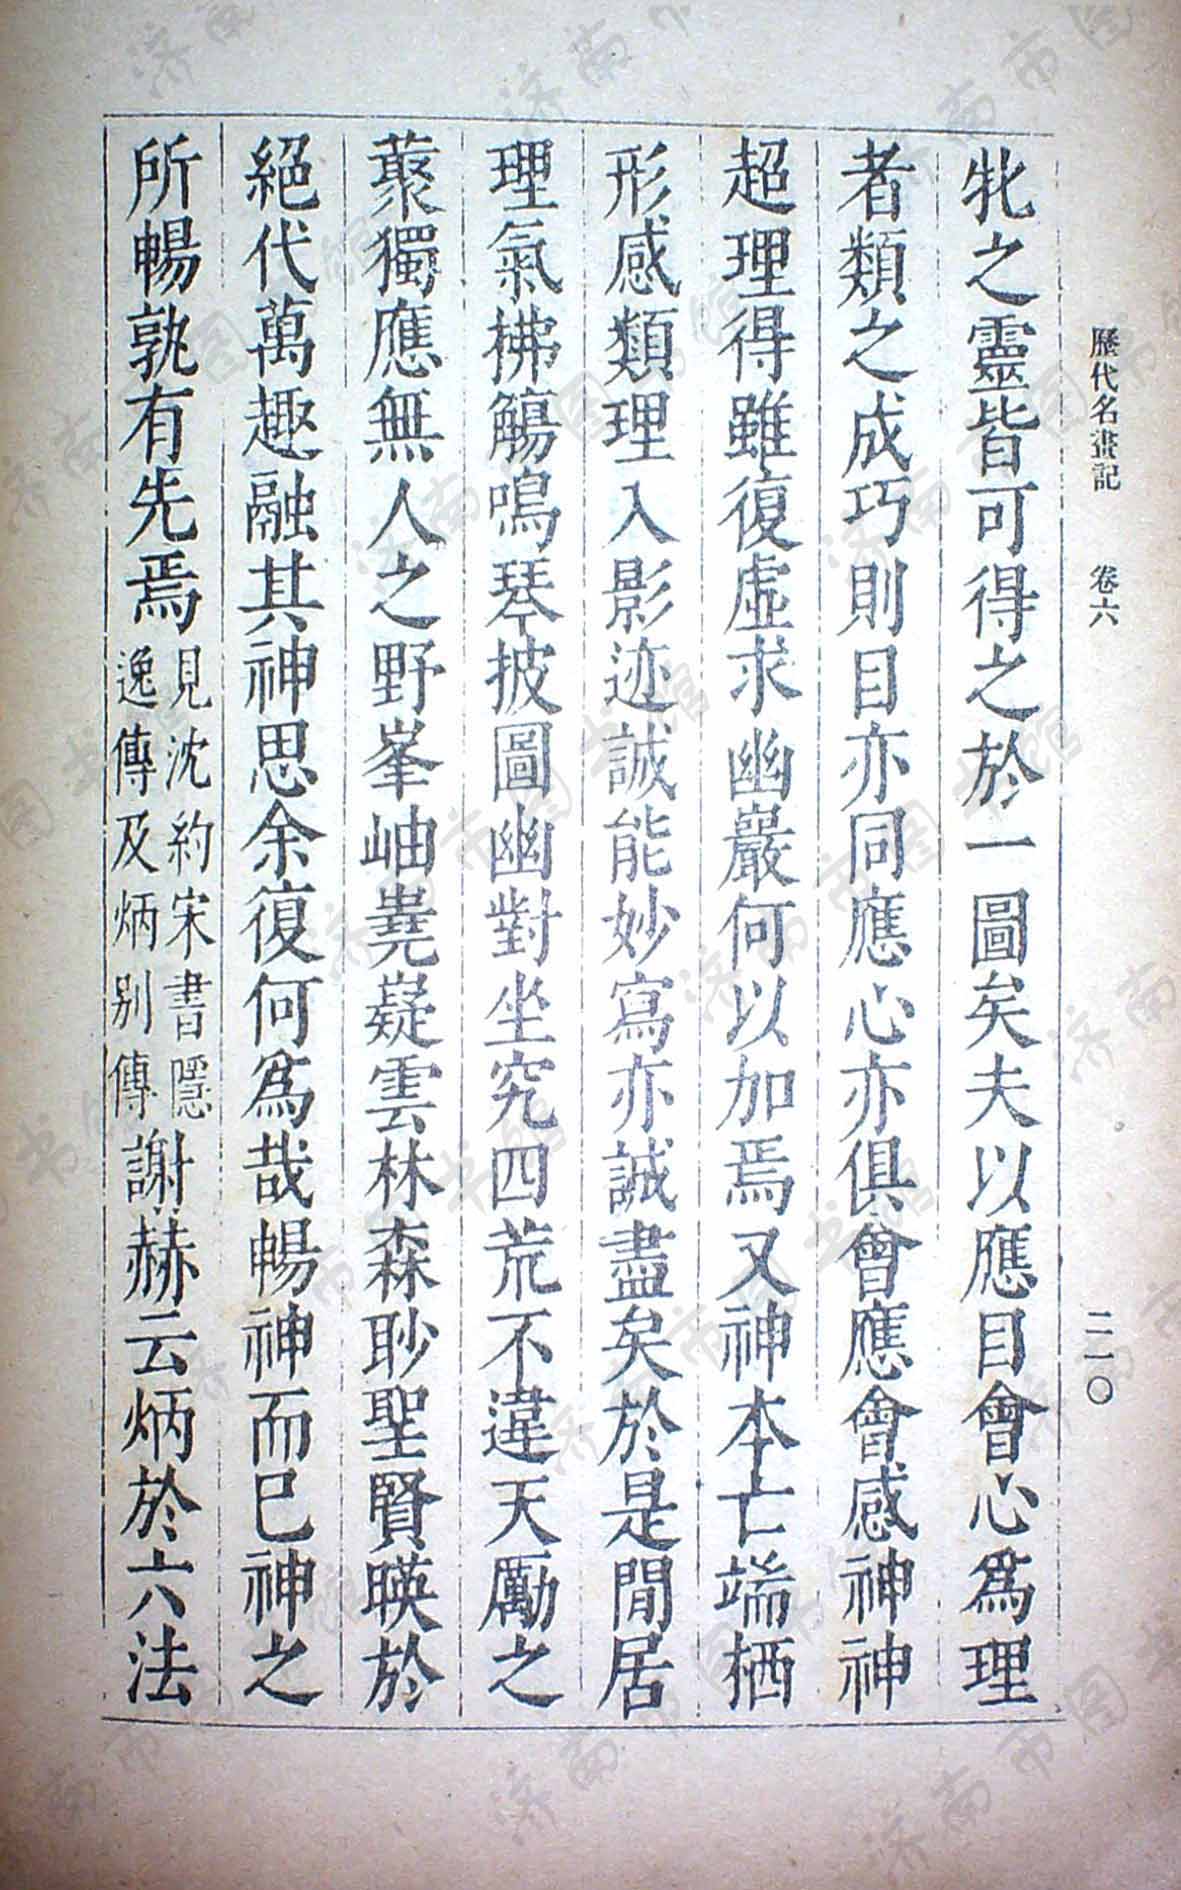 歷代名畫記 卷六 二一〇
牝之靈皆可得之於一圖矣夫以應目會心爲理
者類之成巧則目亦同應心亦俱會應會感神神
超理得雖復虛求幽巖何以加焉又神本亡端栖
形感類理入影迹誠能妙寫亦誠盡矣於是閒居
理氣拂觴鳴琴披圖幽對坐究四荒不違天勵之
藂獨應無人之野峯岫嶤嶷雲林森眇聖賢暎於
絕代萬趣融其神思余復何爲哉暢神而已神之
所暢孰有先焉見沈約宋書隱逸傳及炳別傳謝赫云炳於六法
济南市图书馆